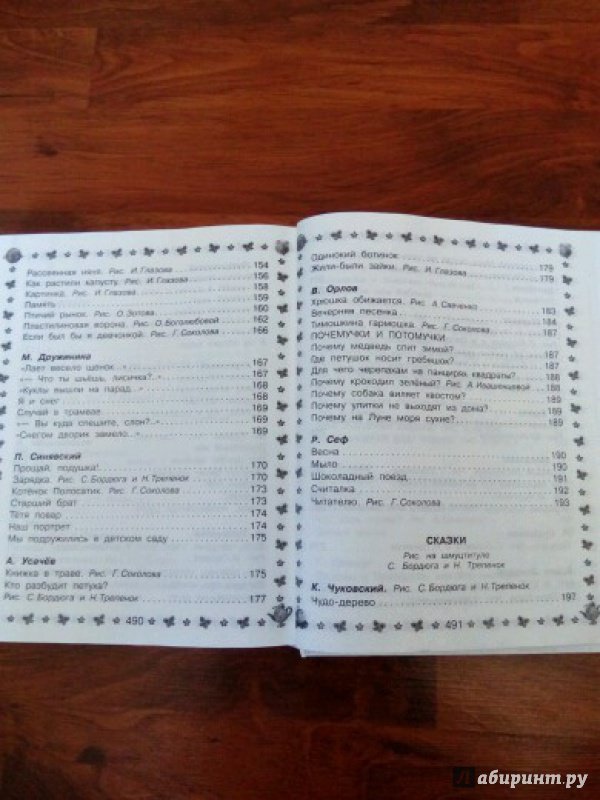 Рассеянная няня. Рис. И. Глазова 154
Как растили капусту. Рис. И. Глазова 156
Картинка. Рис. И. Глазова 158
Память 159
Птичий рынок. Рис. О. Зотова 160
Пластилиновая ворона. Рис. О. Боголюбовой 162
Если был бы я девчонкой. Рис. Г. Соколова 166
М. Дружинина
«Лает весело щенок...» 167
«— Что ты шьёшь, лисичка?..» 167
«Куклы вышли на парад...» 168
Я и снег 168
Случай в трамвае 169
«— Вы куда спешите, слон?..» 169
«Снегом дворик замело...» 169
П. Синявский
Прощай, подушка! 170
Зарядка. Рис. С. Бордюга и Н. Трепенок 170
Котёнок Полосатик. Рис. Г. Соколова 173
Старший брат 173
Тётя повар 174
Наш портрет 174
Мы подружились в детском саду 175
А. Усачёв
Книжка в траве. Рис. Г. Соколова 175
Кто разбудит петуха?
Рис. С. Бордюга и Н. Трепенок 177
490
Одинокий ботинок 179
Жили-были зайки. Рис. И. Глазова 179
В. Орлов
Хрюшка обижается. Рис. А. Савченко
Вечерняя песенка 183
Тимошкина гармошка. Рис. Г. Соколова 184
ПОЧЕМУЧКИ И ПОТОМУЧКИ 187
Почему медведь спит зимой?
Где петушок носит гребешок? 187
Для чего черепахам на панцирях квадраты? 187
Почему крокодил зелёный? Рис. А. Ивашенцевой 188
Почему собака виляет хвостом? 188
Почему улитки не выходят из дома? 189
Почему на Луне моря сухие? 189
Р. Сеф
Весна 190
Мыло 190
Шоколадный поезд 191
Считалка 192
Читателю. Рис. Г. Соколова 193
СКАЗКИ
Рис. на шмуцтитуле
С. Бордюга и Н. Трепенок
К. Чуковский. Рис. С. Бордюга и Н. Трепенок
Чудо-дерево 197
491
Л абиринт.ру